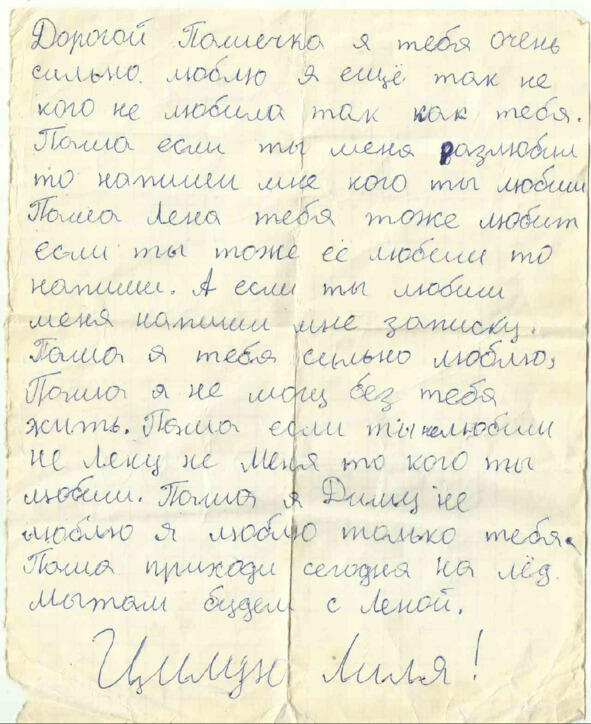 Дорогой Пашечка я тебя очень
сильно люблю я ещё так не
кого не любила так как тебя.
Паша если ты меня разлюбил
то напиши мне кого ты любиш
Паша Лена тебя тоже любит
если ты тоже её любиш то
напиши. А если ты любиш
меня напиши мне записку.
Паша я тебя сильно люблю,
Паша я не могу без тебя
жить. Паша если ты не любиш
не Лену не меня то кого ты
любиш. Паша я Диму не
люблю я люблю только тебя.
Паша приходи сегодня на лёд.
мы там будем с Леной.
Цимун Лиля!